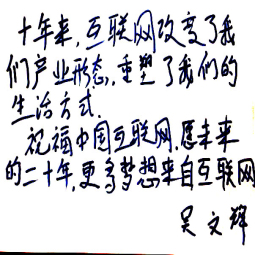 十年来,互联网改变了我
们产业形态,重塑了我们的
生活方式.
祝福中国互联网.愿未来
的二十年,更多梦想来自互联网
吴文辉